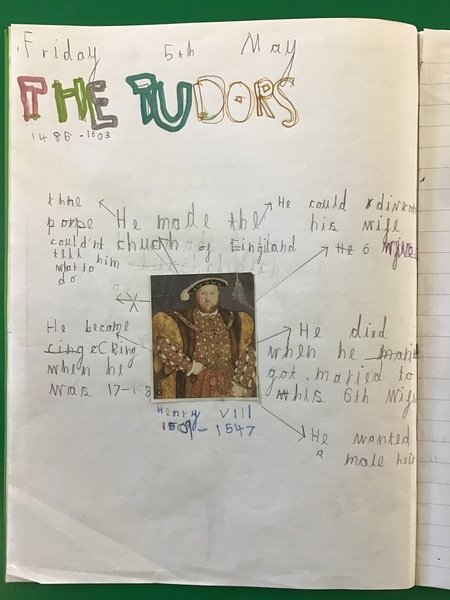 Friday 5th May
THE TUDORS
1485-1603
He made the
church of England
the
pope
could'nt
tell him
what to
do
He could divorce
his wife
He 6 wives
He became
king
when he
was 17-18
He died
when he
got maried to
his 6th wife
He wanted
a male heir
Henry VIII
1509-1547